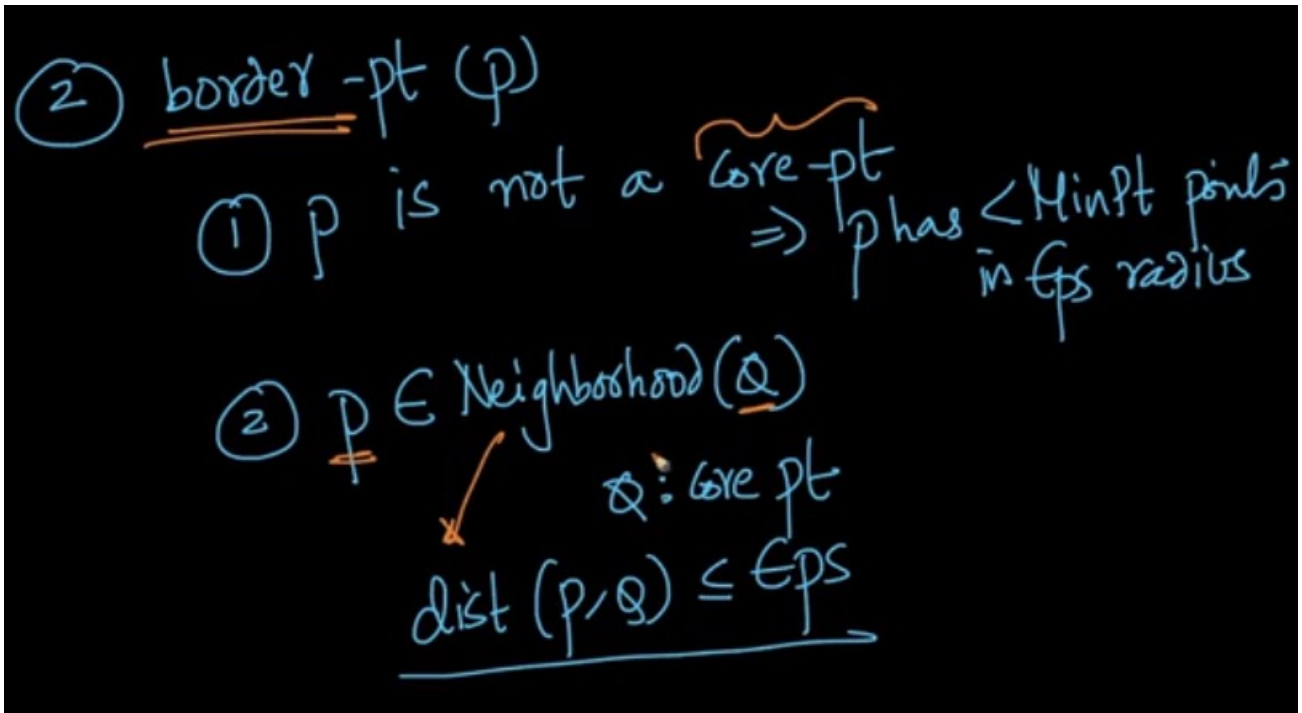 ② border-pt (p)
① p is not a core-pt
⇒ p has < MinPt points
in Eps radius
② p ∈ Neighborhood(Q)
Q: core pt
dist (p, Q) ≤ Eps